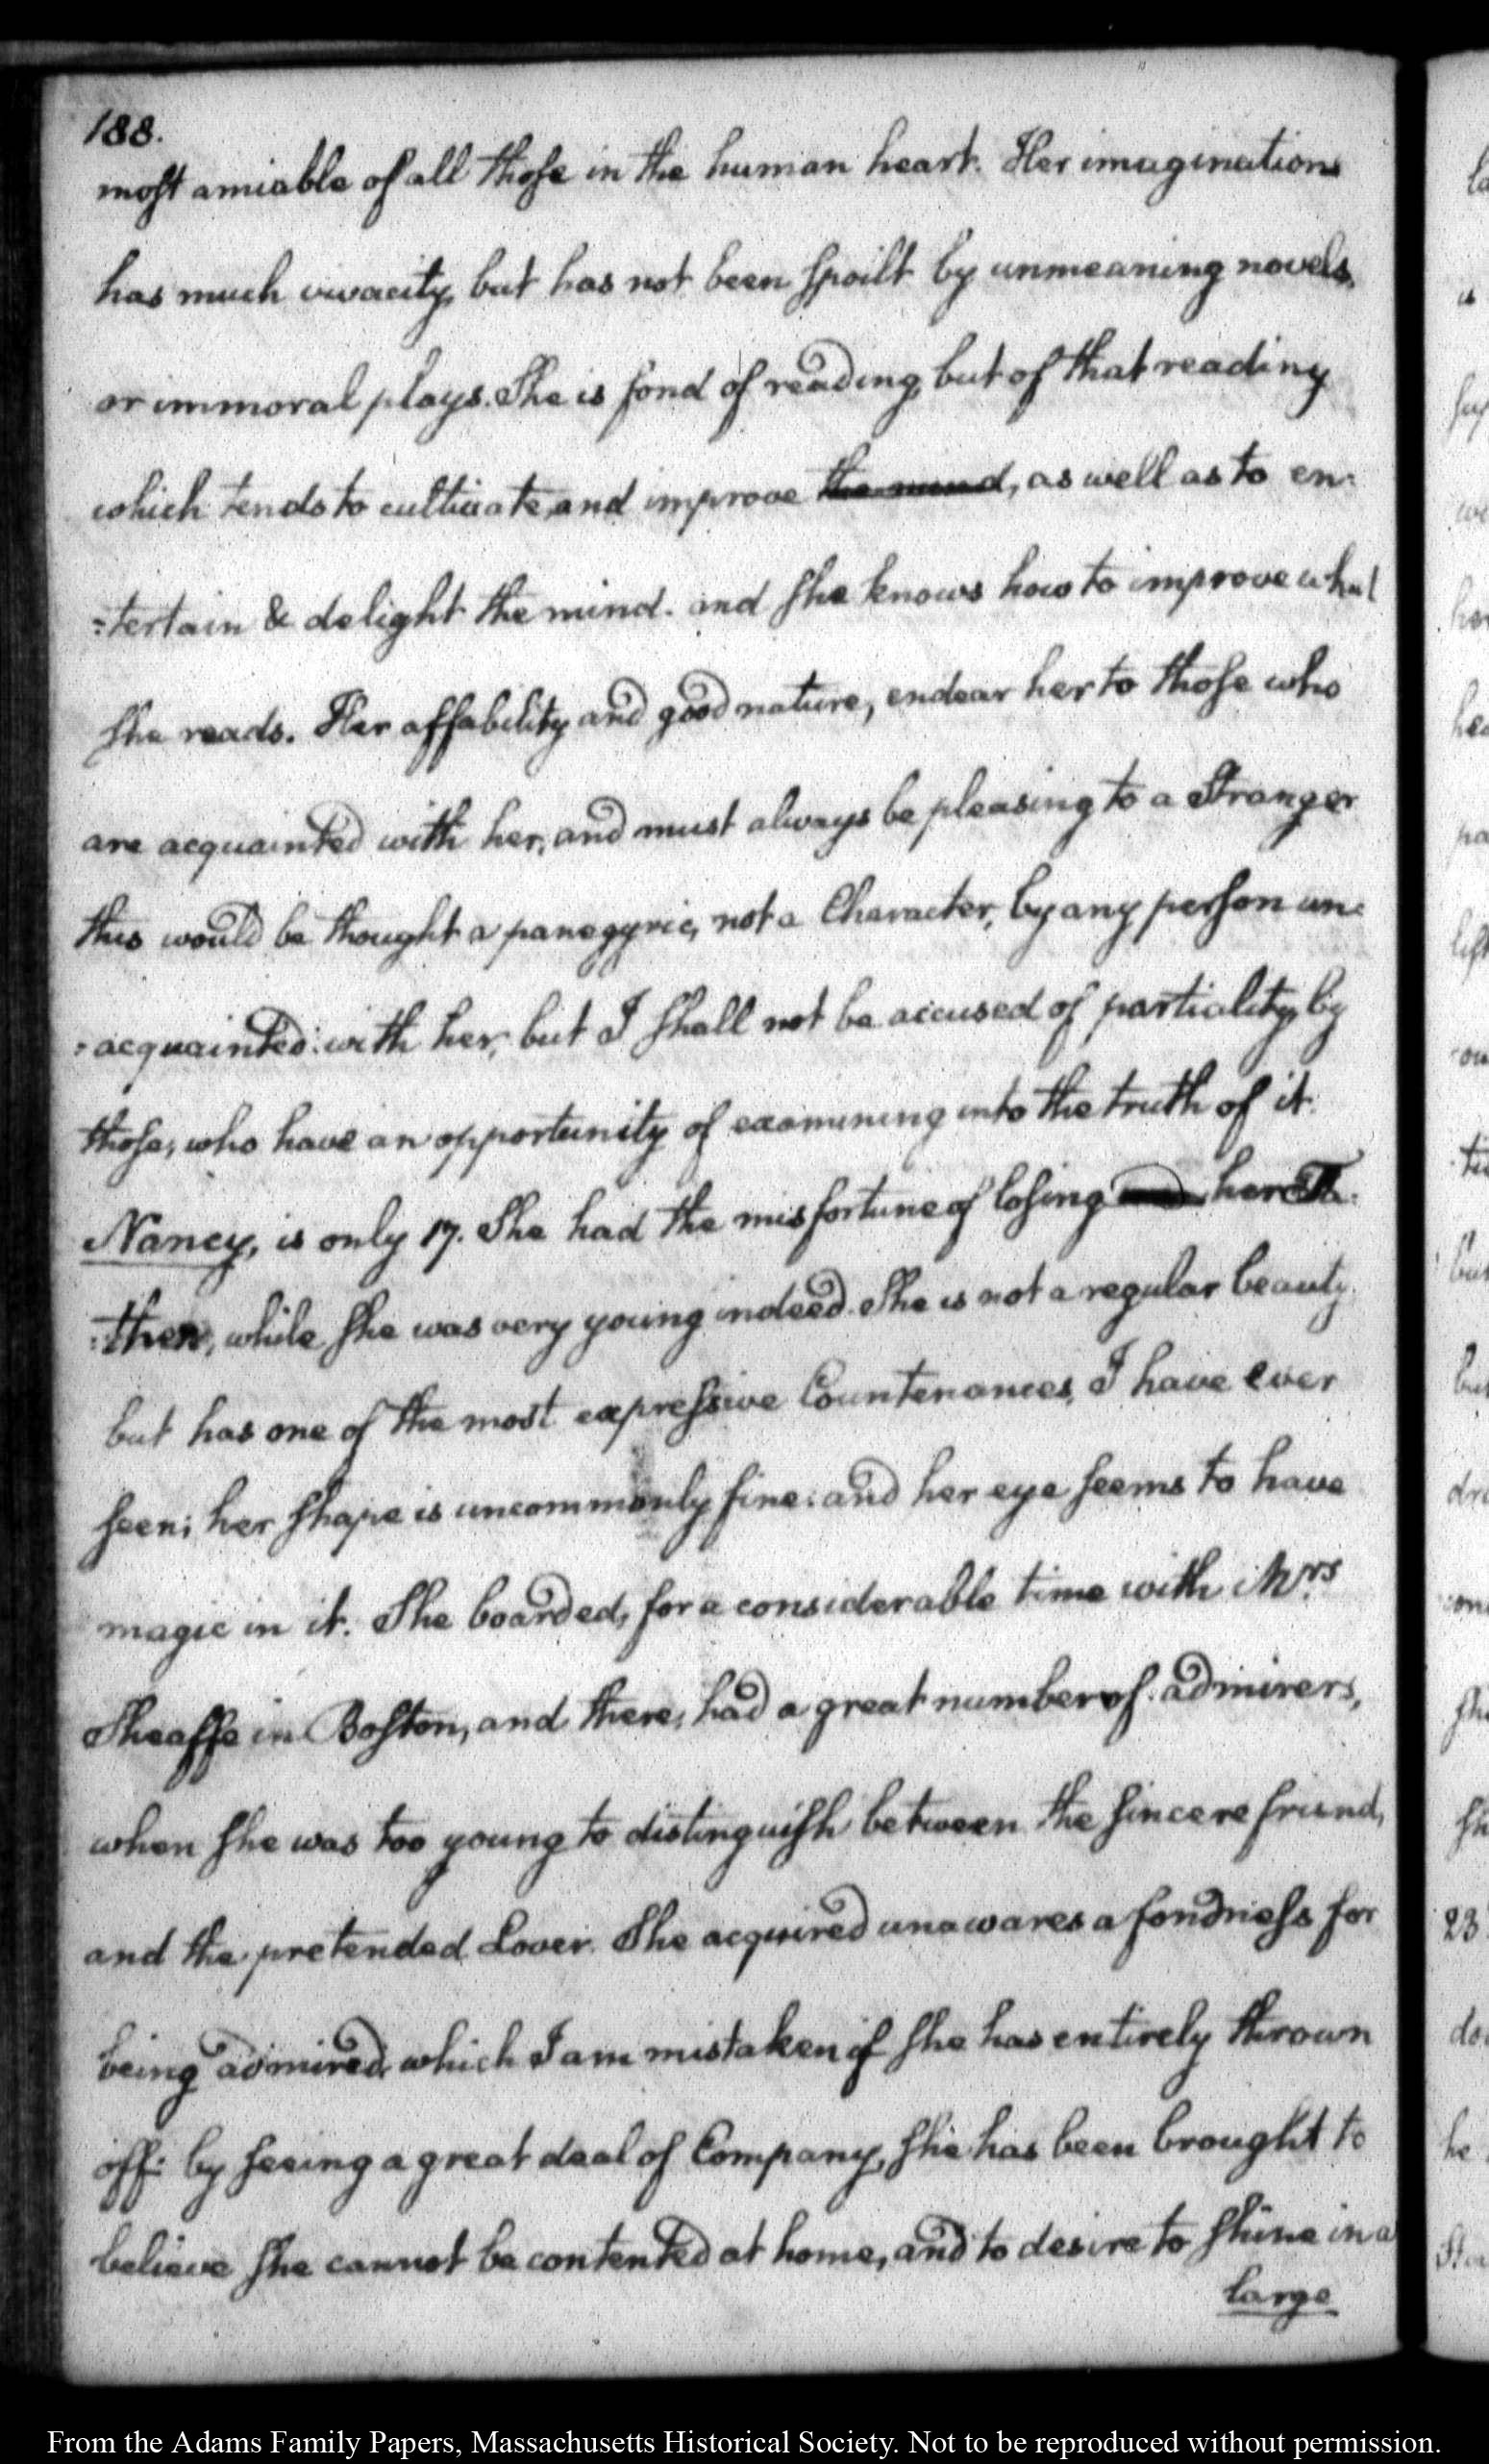 188.
most amiable of all those in the human heart. Her imagination
has much vivacity, but has not been spoilt by unmeaning novels,
or immoral plays. She is fond of reading, but of that reading
which tends to cultivate, and improve the mind, as well as to en-
=tertain & delight the mind. and she knows how to improve what
she reads. Her affability and good nature, endear her to those who
are acquainted with her, and must always be pleasing to a Stranger
this would be thought a panegyric, not a Character, by any person un-
-acquainted with her, but I shall not be accused of partiality, by
those, who have an opportunity of examining into the truth of it.
Nancy, is only 17. She had the misfortune of losing her Fa-
-ther, while she was very young indeed. She is not a regular beauty,
but has one of the most expressive Countenances, I have ever
seen; her shape is uncommonly fine: and her eye seems to have
magic in it. She boarded, for a considerable time with Mrs
Sheaffe in Boston, and there, had a great number of admirers,
when she was too young to distinguish between the sincere friend,
and the pretended Lover. She acquired unawares a fondness for
being admired, which I am mistaken if she has entirely thrown
off: by seeing a great deal of Company, she has been brought to
believe she cannot be contented at home, and to desire to shine in a
large
From the Adams Family Papers, Massachusetts Historical Society. Not to be reproduced without permission.